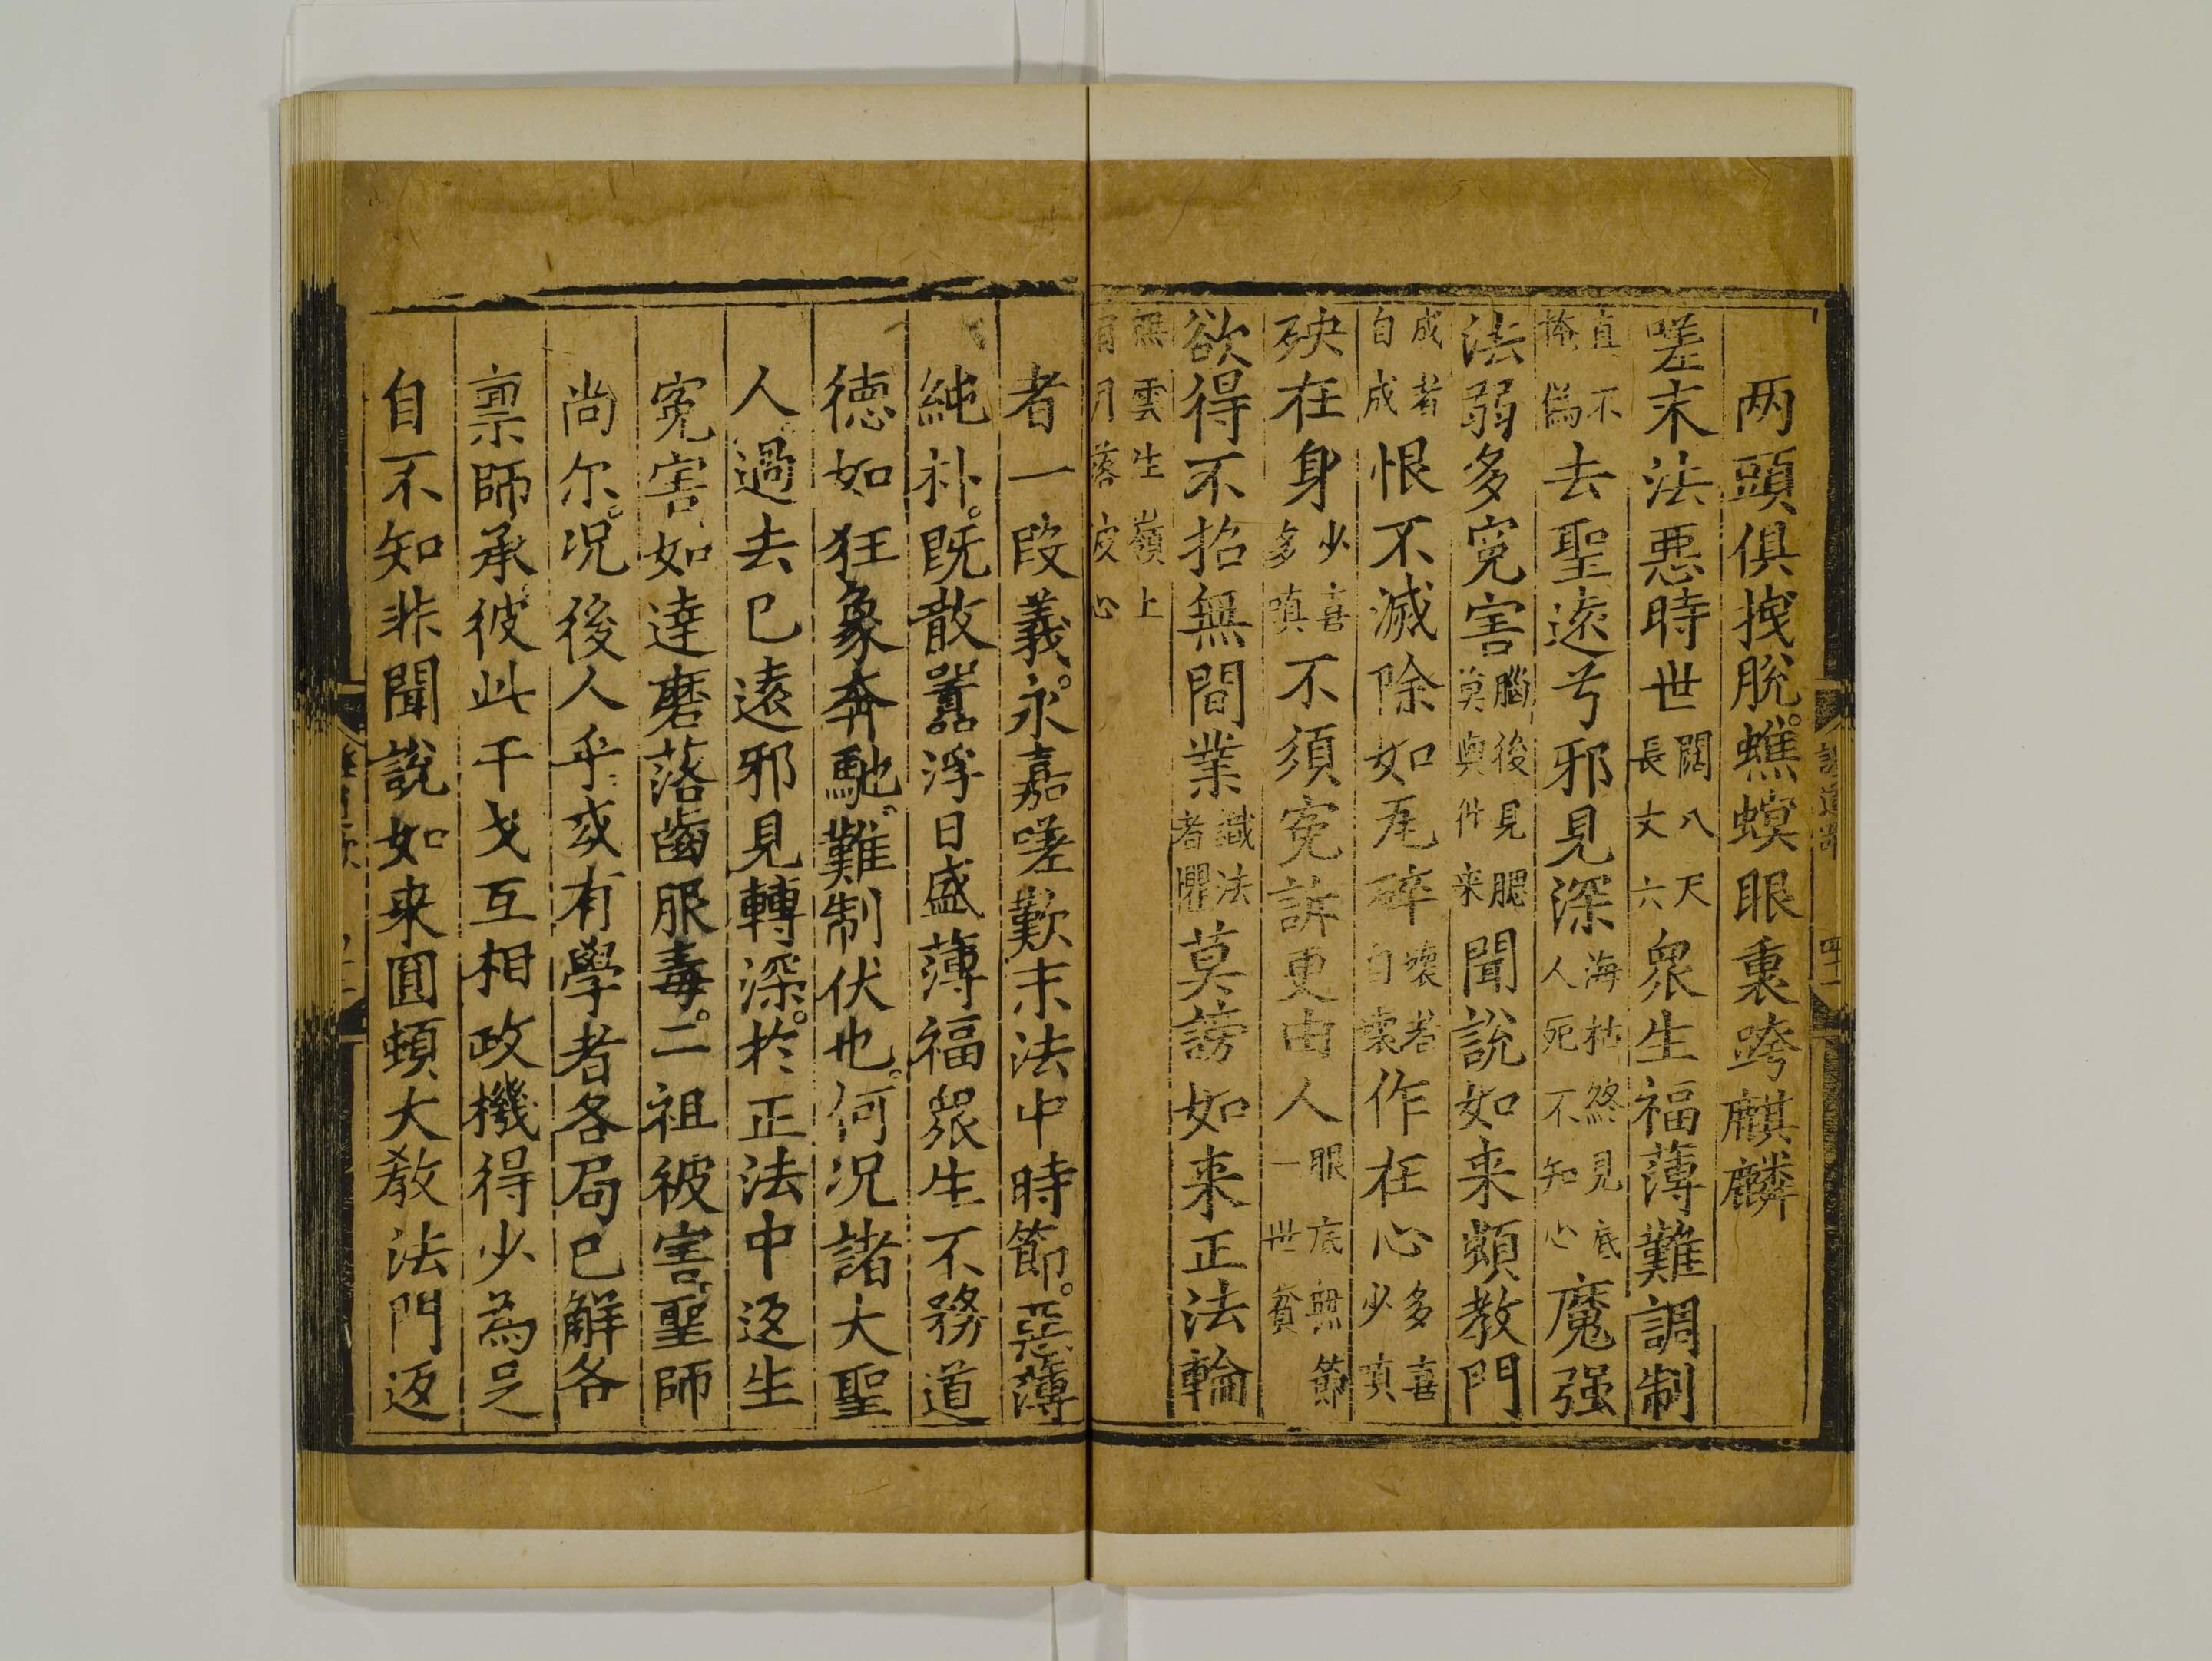 两頭俱拽脫。蟭螟眼裏跨麒麟
嗟末法惡時世闊八天長丈六衆生福薄難調制
真不掩偽去聖逺兮邪見深海枯終見底人死不知心魔强
法弱多寃害腦後見腮莫與件来聞說如来頓教門
成者自成恨不滅除如瓦碎壞者自壞作在心多喜少嗔
殃在身少喜多嗔不須寃訴更由人眼底無節一世貧
欲得不招無間業識法者懼莫謗如来正法輪
無雲生嶺上有月落波心
者一段義。永嘉嗟歎末法中時節。惡薄
純朴。既散囂浮日盛薄福衆生不務道
徳如狂象奔馳。難制伏也。何况諸大聖
人。過去已遠邪見轉深。於正法中返生
寃害如達磨落齒服毒。二祖被害。聖師
尚尔。况後人乎或有學者各局已解各
禀師承。彼此干戈互相攻機得少為足
自不知非聞說如来圓頓大教法門返